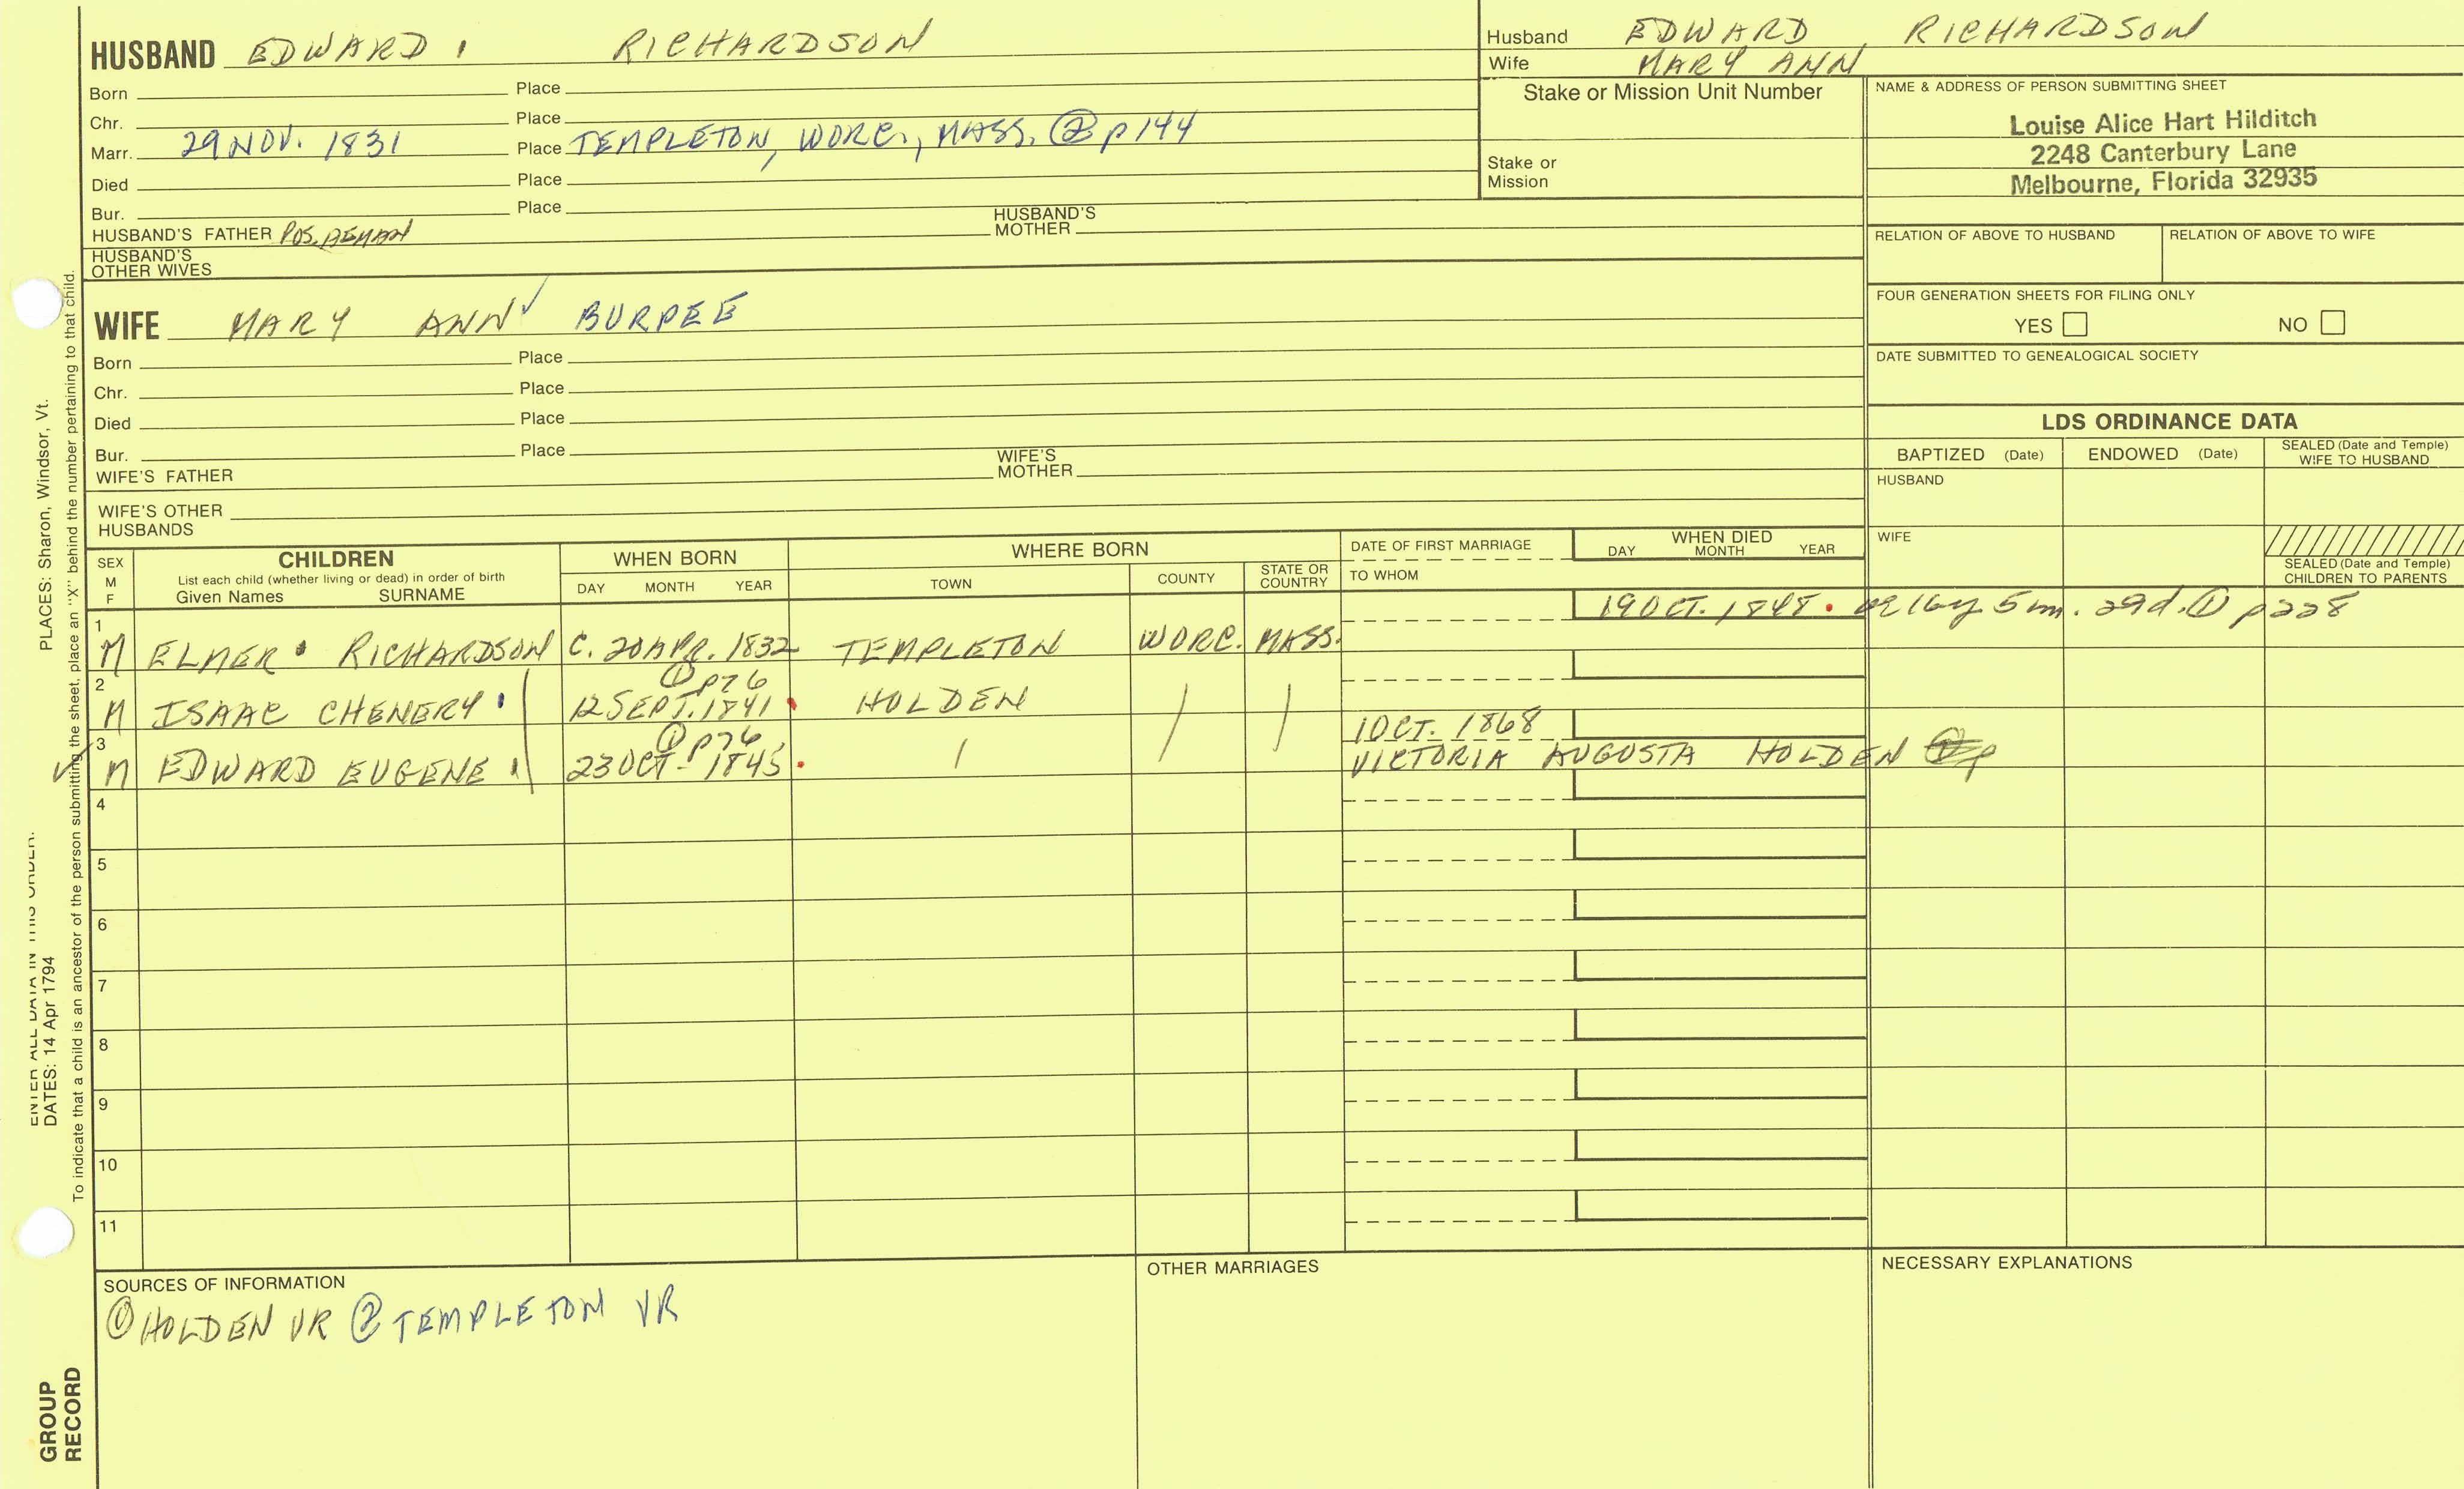 HUSBAND EDWARD RICHARDSON
Born Place
Chr. Place
Marr. 29 NOV. 1831 Place TEMPLETON, WORC., MASS. ② p 144
Died Place
Bur. Place
HUSBAND'S FATHER POS. HUSBAND'S MOTHER
HUSBAND'S OTHER WIVES
Husband EDWARD RICHARDSON
Wife MARY ANN
Stake or Mission Unit Number
Stake or Mission
NAME & ADDRESS OF PERSON SUBMITTING SHEET
Louise Alice Hart Hilditch
2248 Canterbury Lane
Melbourne, Florida 32935
RELATION OF ABOVE TO HUSBAND RELATION OF ABOVE TO WIFE
FOUR GENERATION SHEETS FOR FILING ONLY
YES NO
DATE SUBMITTED TO GENEALOGICAL SOCIETY
WIFE MARY ANN ✓ BURPEE
Born Place
Chr. Place
Died Place
Bur. Place
WIFE'S FATHER WIFE'S MOTHER
WIFE'S OTHER HUSBANDS
LDS ORDINANCE DATA
BAPTIZED (Date) ENDOWED (Date) SEALED (Date and Temple) WIFE TO HUSBAND
HUSBAND
WIFE
SEALED (Date and Temple) CHILDREN TO PARENTS
SEX M F
CHILDREN
List each child (whether living or dead) in order of birth
Given Names SURNAME
WHEN BORN
DAY MONTH YEAR
WHERE BORN
TOWN COUNTY STATE OR COUNTRY
DATE OF FIRST MARRIAGE
TO WHOM
WHEN DIED
DAY MONTH YEAR
1 M ELMER RICHARDSON C. 20 APR. 1832 TEMPLETON WORC. MASS. 19 OCT. 1848. ae 16y 5m. 29d. ① p228
2 M ISAAC CHENERY ① p76 12 SEPT. 1841 HOLDEN / /
3 ✓ M EDWARD EUGENE ① p76 23 OCT. 1845 / 1 OCT. 1868
VICTORIA AUGUSTA HOLDEN
4
5
6
7
8
9
10
11
SOURCES OF INFORMATION
① HOLDEN VR ② TEMPLETON VR
OTHER MARRIAGES
NECESSARY EXPLANATIONS
ENTER ALL DATA IN THIS ORDER:
PLACES: Sharon, Windsor, Vt.
DATES: 14 Apr 1794
To indicate that a child is an ancestor of the person submitting the sheet, place an "X" behind the number pertaining to that child.
GROUP
RECORD